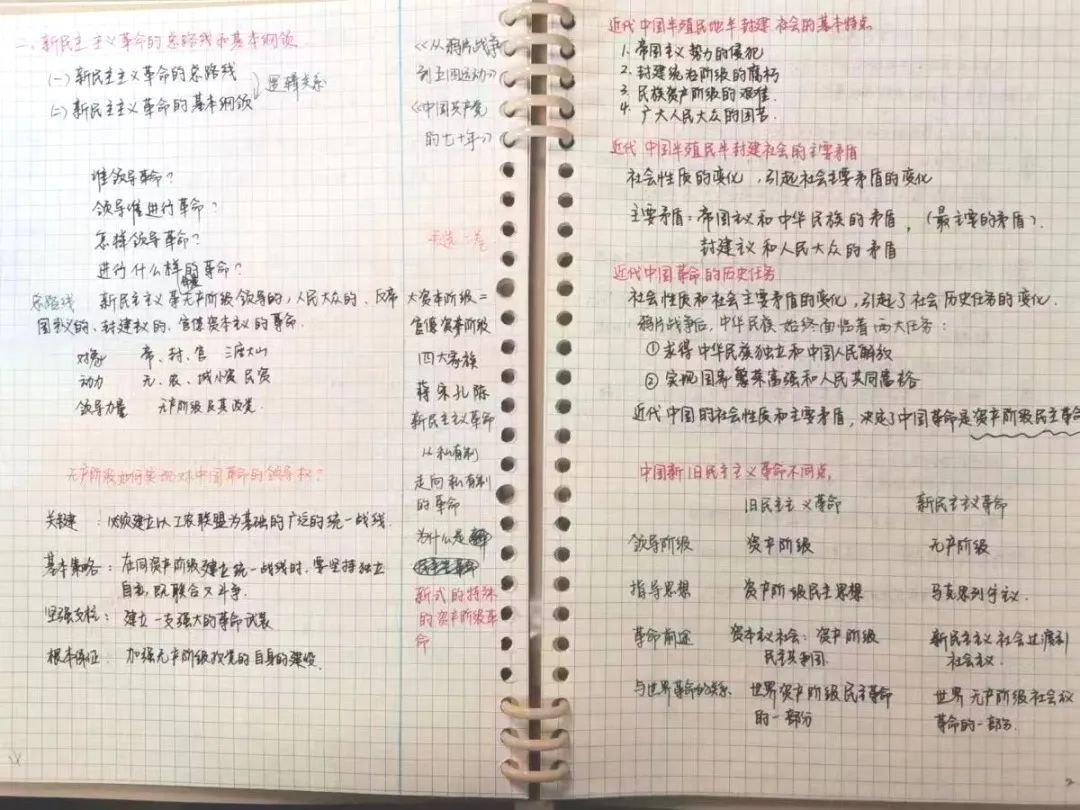 二、新民主主义革命的总路线和基本纲领
(一)新民主主义革命的总路线
(二)新民主主义革命的基本纲领
逻辑关系
谁领导革命?
领导谁进行革命?
怎样领导革命?
进行什么样的革命?
总路线 新民主主义革命无产阶级领导的,人民大众的、反帝
国主义的、封建主义的、官僚资本主义的革命.
对象 帝、封、官 三座大山
动力 无、农、城小资 民资
领导力量 无产阶级及其政党.
无产阶级如何实现对中国革命的领导权?
关键 : 必须建立以工农联盟为基础的广泛的统一战线.
基本策略: 在同资产阶级建立统一战线时,要坚持独立
自主,既联合又斗争.
坚强支柱: 建立一支强大的革命武装
根本保证: 加强无产阶级政党的自身的建设.
《从鸦片战争
到五四运动》
《中国共产党
的七十年》
毛选 二卷.
大资本阶级=
官僚资本阶级
四大家族
蒋宋孔陈
新民主主义革命
从私有制
走向私有制
的革命
为什么是
新式的特殊
的资产阶级革
命
近代中国半殖民地半封建社会的基本特点
1.帝国主义势力的侵犯
2.封建统治阶级的腐朽
3.民族资产阶级的艰难.
4.广大人民大众的困苦.
近代中国半殖民半封建社会的主要矛盾
社会性质的变化,引起社会主要矛盾的变化
主要矛盾:帝国主义和中华民族的矛盾,(最主要的矛盾).
封建主义和人民大众的矛盾
近代中国革命的历史任务
社会性质和社会主要矛盾的变化,引起了社会历史任务的变化.
鸦片战争后,中华民族始终面临着两大任务:
①求得中华民族独立和中国人民解放
②实现国家繁荣富强和人民共同富裕
近代中国的社会性质和主要矛盾,决定了中国革命是资产阶级民主革命
中国新旧民主主义革命不同点.
旧民主主义革命 新民主主义革命
领导阶级 资产阶级 无产阶级
指导思想 资产阶级民主思想 马克思列宁主义.
革命前途 资本主义社会:资产阶级 新民主主义社会过渡到
民主共和国. 社会主义.
与世界革命的关系 世界资产阶级民主革命 世界无产阶级社会主义
的一部分 革命的一部分.
2